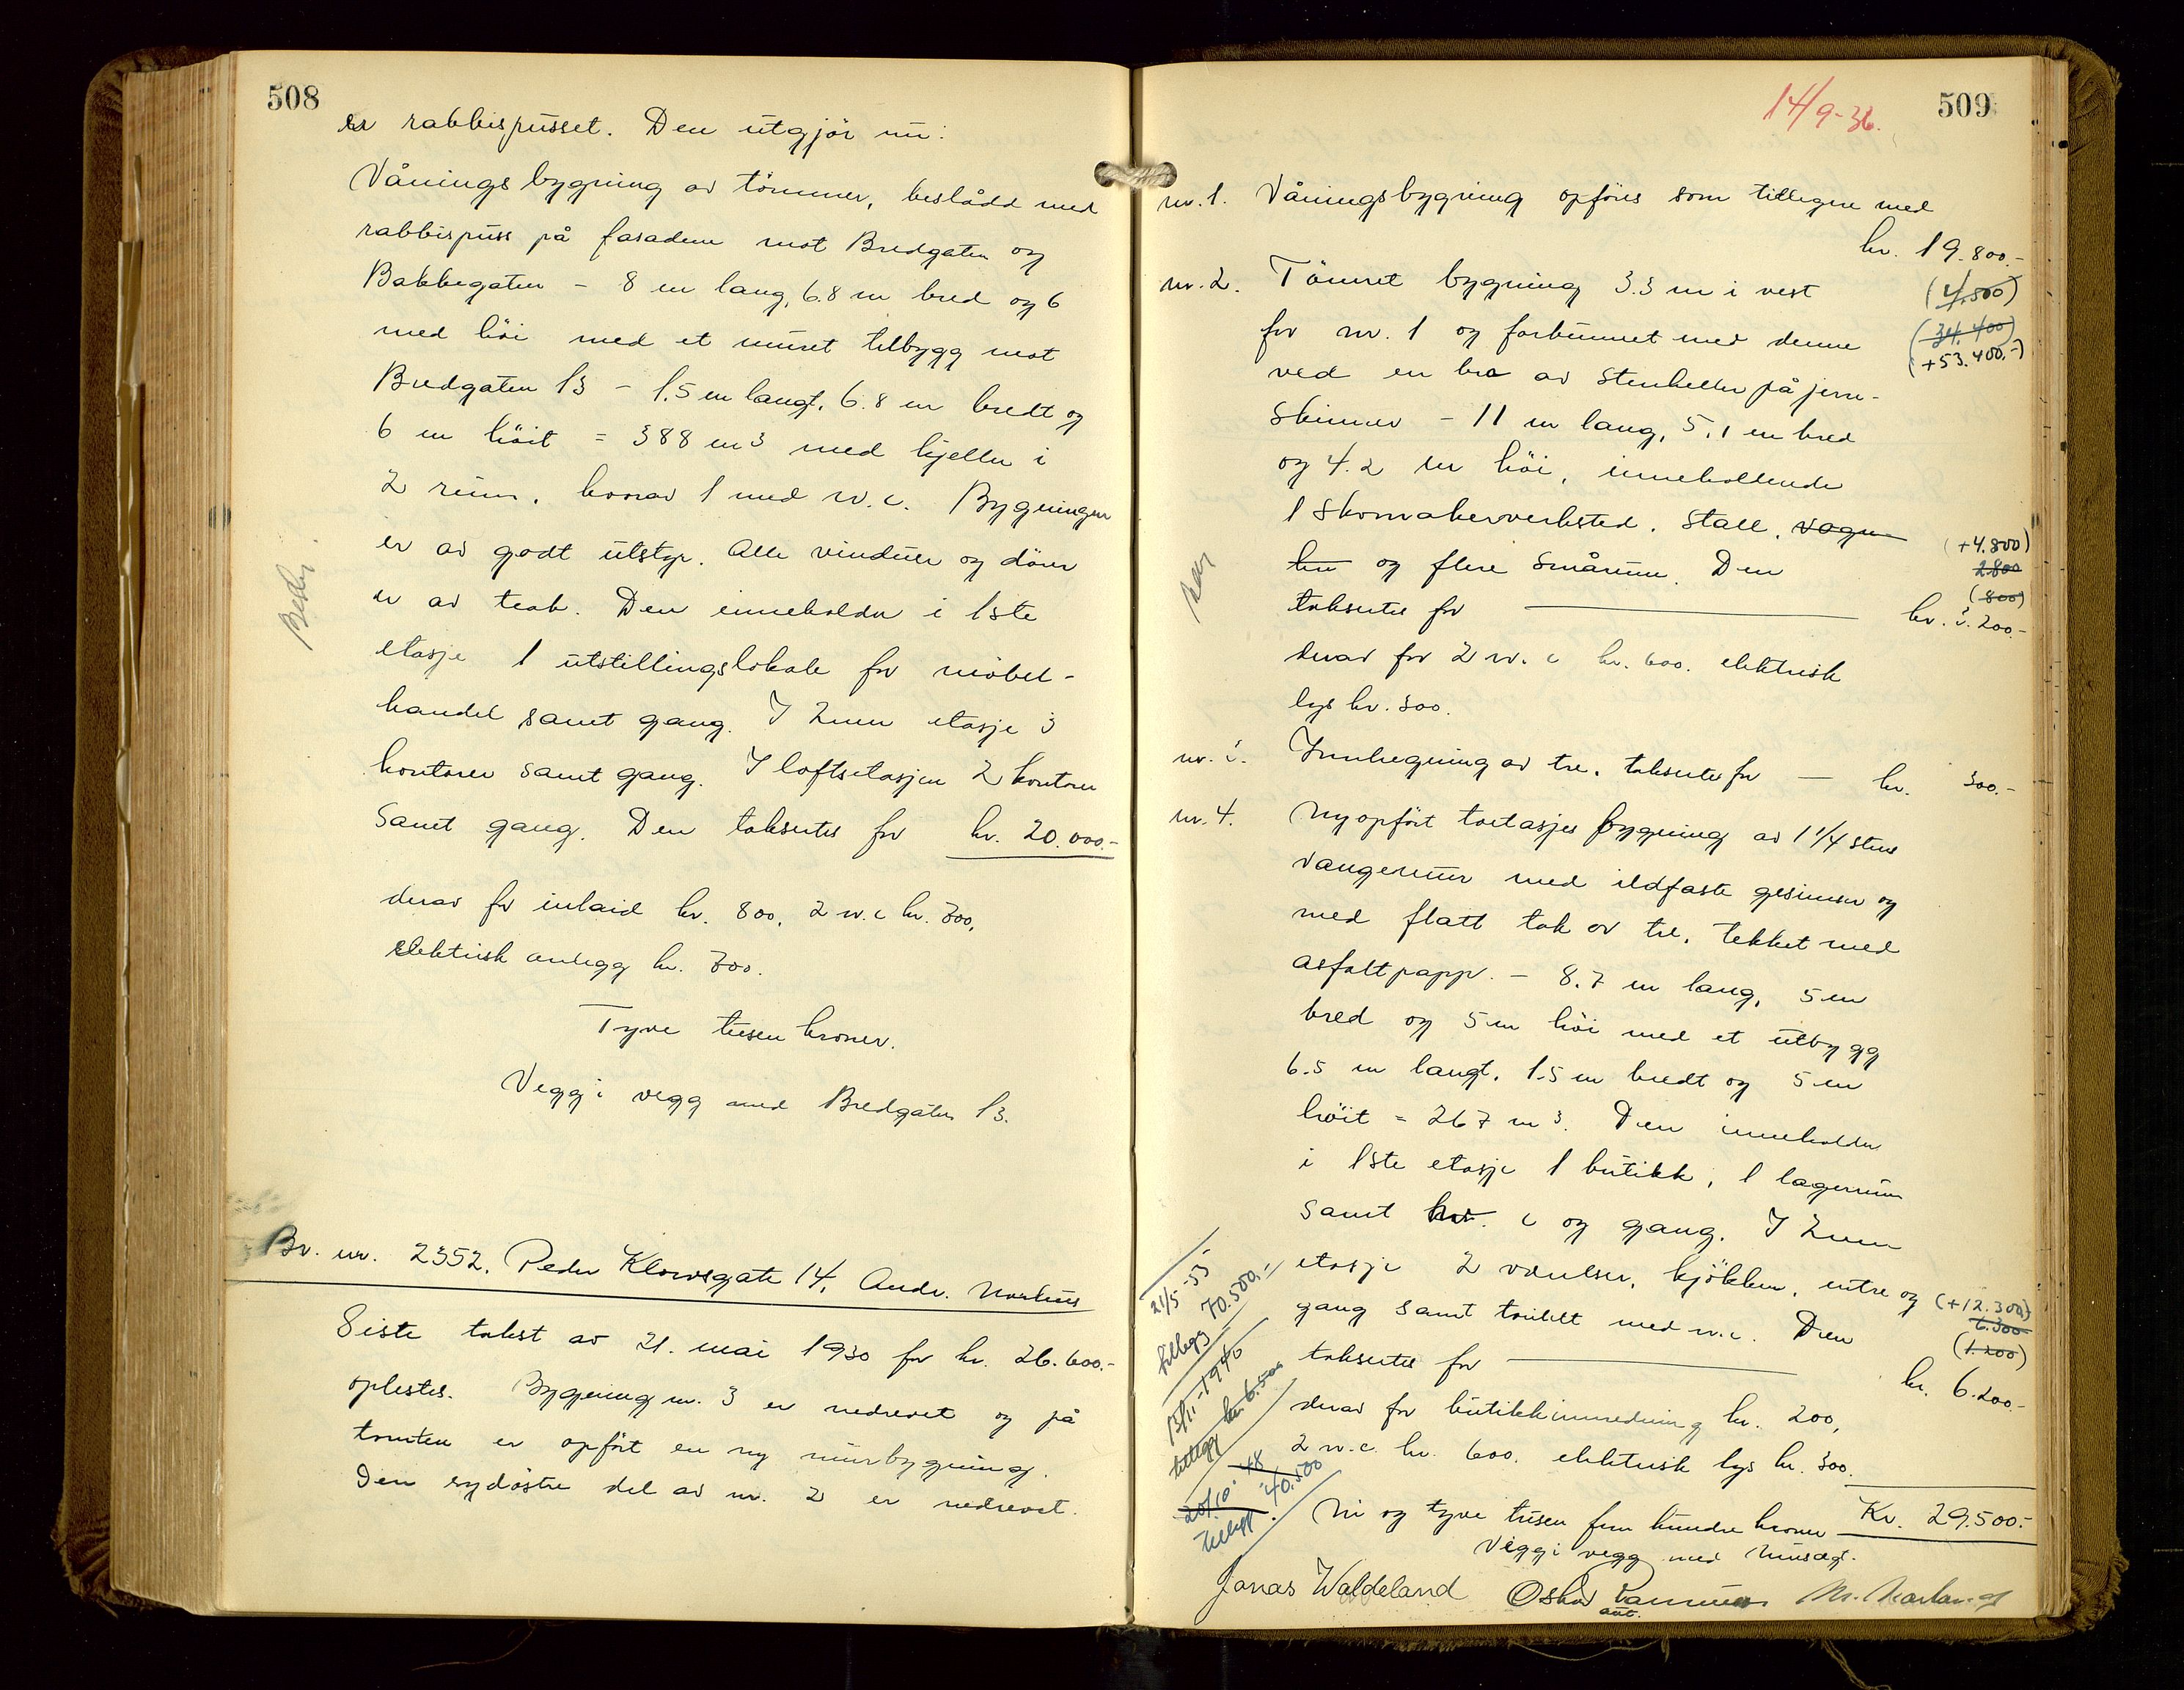 508
er rabbispusset. Den utgjör nu:
Våningsbygning av tömmer, beslådd med
rabbispuss på fasadene mot Bredgaten og
Bakkegaten - 8 m lang, 6.8 m bred og 6
med höi med et muret tilbygg mot
Bredgaten 13 - 1.5 m langt, 6.8 m bredt og
6 m höit = 388 m3 med kjeller i
2 rum, hvorav 1 med w.c. Bygningen
er av godt utstyr. Alle vinduer og dörer
er av teak. Den inneholder i 1ste
etasje 1 utstillingslokale for möbel-
handel samt gang. I 2nen etasje 3
kontorer samt gang. I loftsetasjen 2 kontorer
samt gang. Den taksertes for kr. 20.000.-
derav for inlaid kr. 800, 2 w.c kr. 700,
elektrisk anlegg kr. 700.
Tyve tusen kroner.
Vegg i vegg med Bredgaten 13.
Br. nr. 2352. Peder Klowsgate 14, Andr. Norhus
Siste takst av 21. mai 1930 for kr. 26.600.-
oplestes. Bygning nr. 3 er nedrevet og på
tomten er opfört en ny murbygning.
Den sydöstre del av nr. 2 er nedrevet.
509
14/9-36.
nr. 1. Våningsbygning opföres som tidligere med
kr. 19.800.-
(4.500)
(34.400)
(+53.400.-)
nr. 2. Tömret bygning 3.3 m i vest
for nr. 1 og forbunnet med denne
ved en bro av stenheller på jern-
skinner - 11 m lang, 5,1 m bred
og 4.2 m höi, inneholdende
1 skomakerverksted, stall, vogn-
hus og flere smårum. Den
(+4.800)
2.800
(800)
taksertes for kr. 3.200.-
derav for 2 w.c kr. 600. elektrisk
lys kr. 300.
nr. 3. Innhegning av tre, taksertes for - kr. 300.-
nr. 4. Nyopfört toetasjes bygning av 1 1/4 stens
vangemur med ildfaste gesimser og
med flatt tak av tre, tekket med
asfaltpapp. - 8.7 m lang, 5 m
bred og 5 m höi med et utbygg
6.5 m langt, 1.5 m bredt og 5 m
höit = 267 m3. Den inneholder
i 1ste etasje 1 butikk, 1 lagerrum
samt w. c og gang. I 2nen
etasje 2 værelser, kjökken, entre og
gang samt toilett med w.c. Den
(+12.300)
6.300
(1.200)
taksertes for kr. 6.200.-
derav for butikkinnredning kr. 200,
2 w.c. kr. 600. elektrisk lys kr. 300.
Kr. 29.500.-
Ni og tyve tusen fem hundre kroner
Vegg i vegg med
21/5-53
tillegg 70.500.-
13/11-1940
tillegg kr. 6.500
20/10-48
tillegg 40.500
Jonas Waldeland Oskar